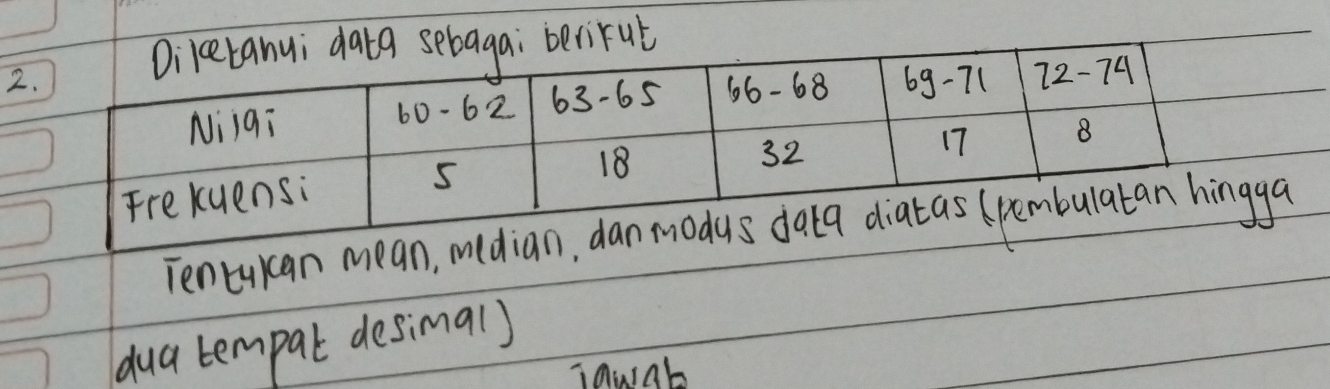 2. Diketahui data sebagai berikut
Nilai 60-62 63-65 66-68 69-71 72-74
Frekuensi 5 18 32 17 8
Tentukan mean, median, dan modus data diatas (pembulatan hingga
dua tempat desimal)
Jawab